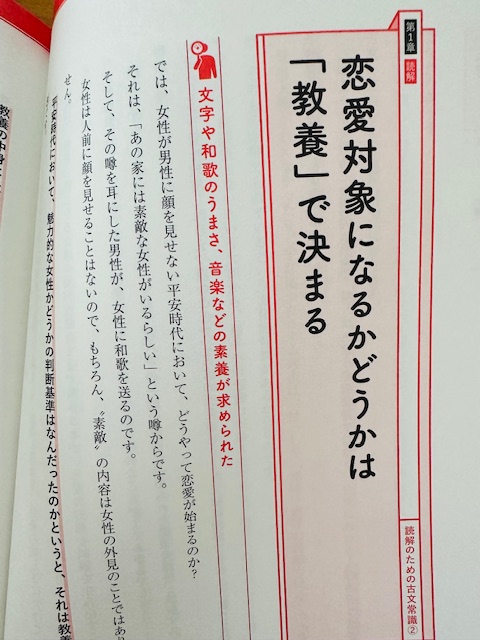 第1章
読解
恋愛対象になるかどうかは
「教養」で決まる
読解のための古文常識②
文字や和歌のうまさ、音楽などの素養が求められた
では、女性が男性に顔を見せない平安時代において、どうやって恋愛が始まるのか?
それは、「あの家には素敵な女性がいるらしい」という噂からです。
そして、その噂を耳にした男性が、女性に和歌を送るのです。
女性は人前に顔を見せることはないので、もちろん、〝素敵〟の内容は女性の外見のことではあり
せん。
平安時代において、魅力的な女性かどうかの判断基準はなんだったのかというと、それは教養
教養の中身